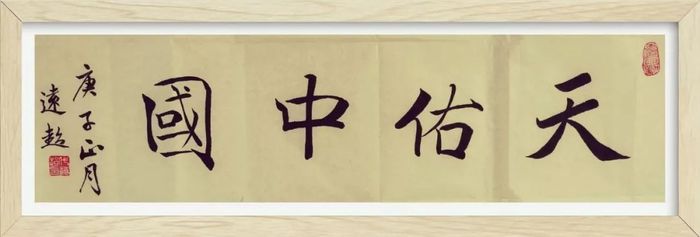 天佑中國
庚子正月
遠超